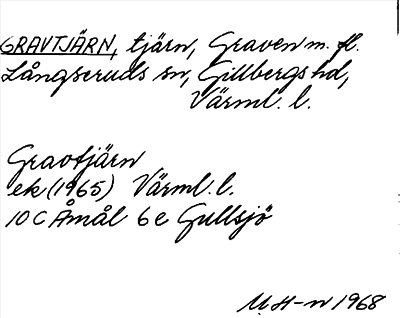 GRAVTJÄRN, tjärn, Graven m. fl.
Långseruds sn, Gillbergs hd,
Värml. l.
Gravtjärn
ek (1965) Värml. l.
10 C Åmål 6 e Gullsjö
M H-n 1968